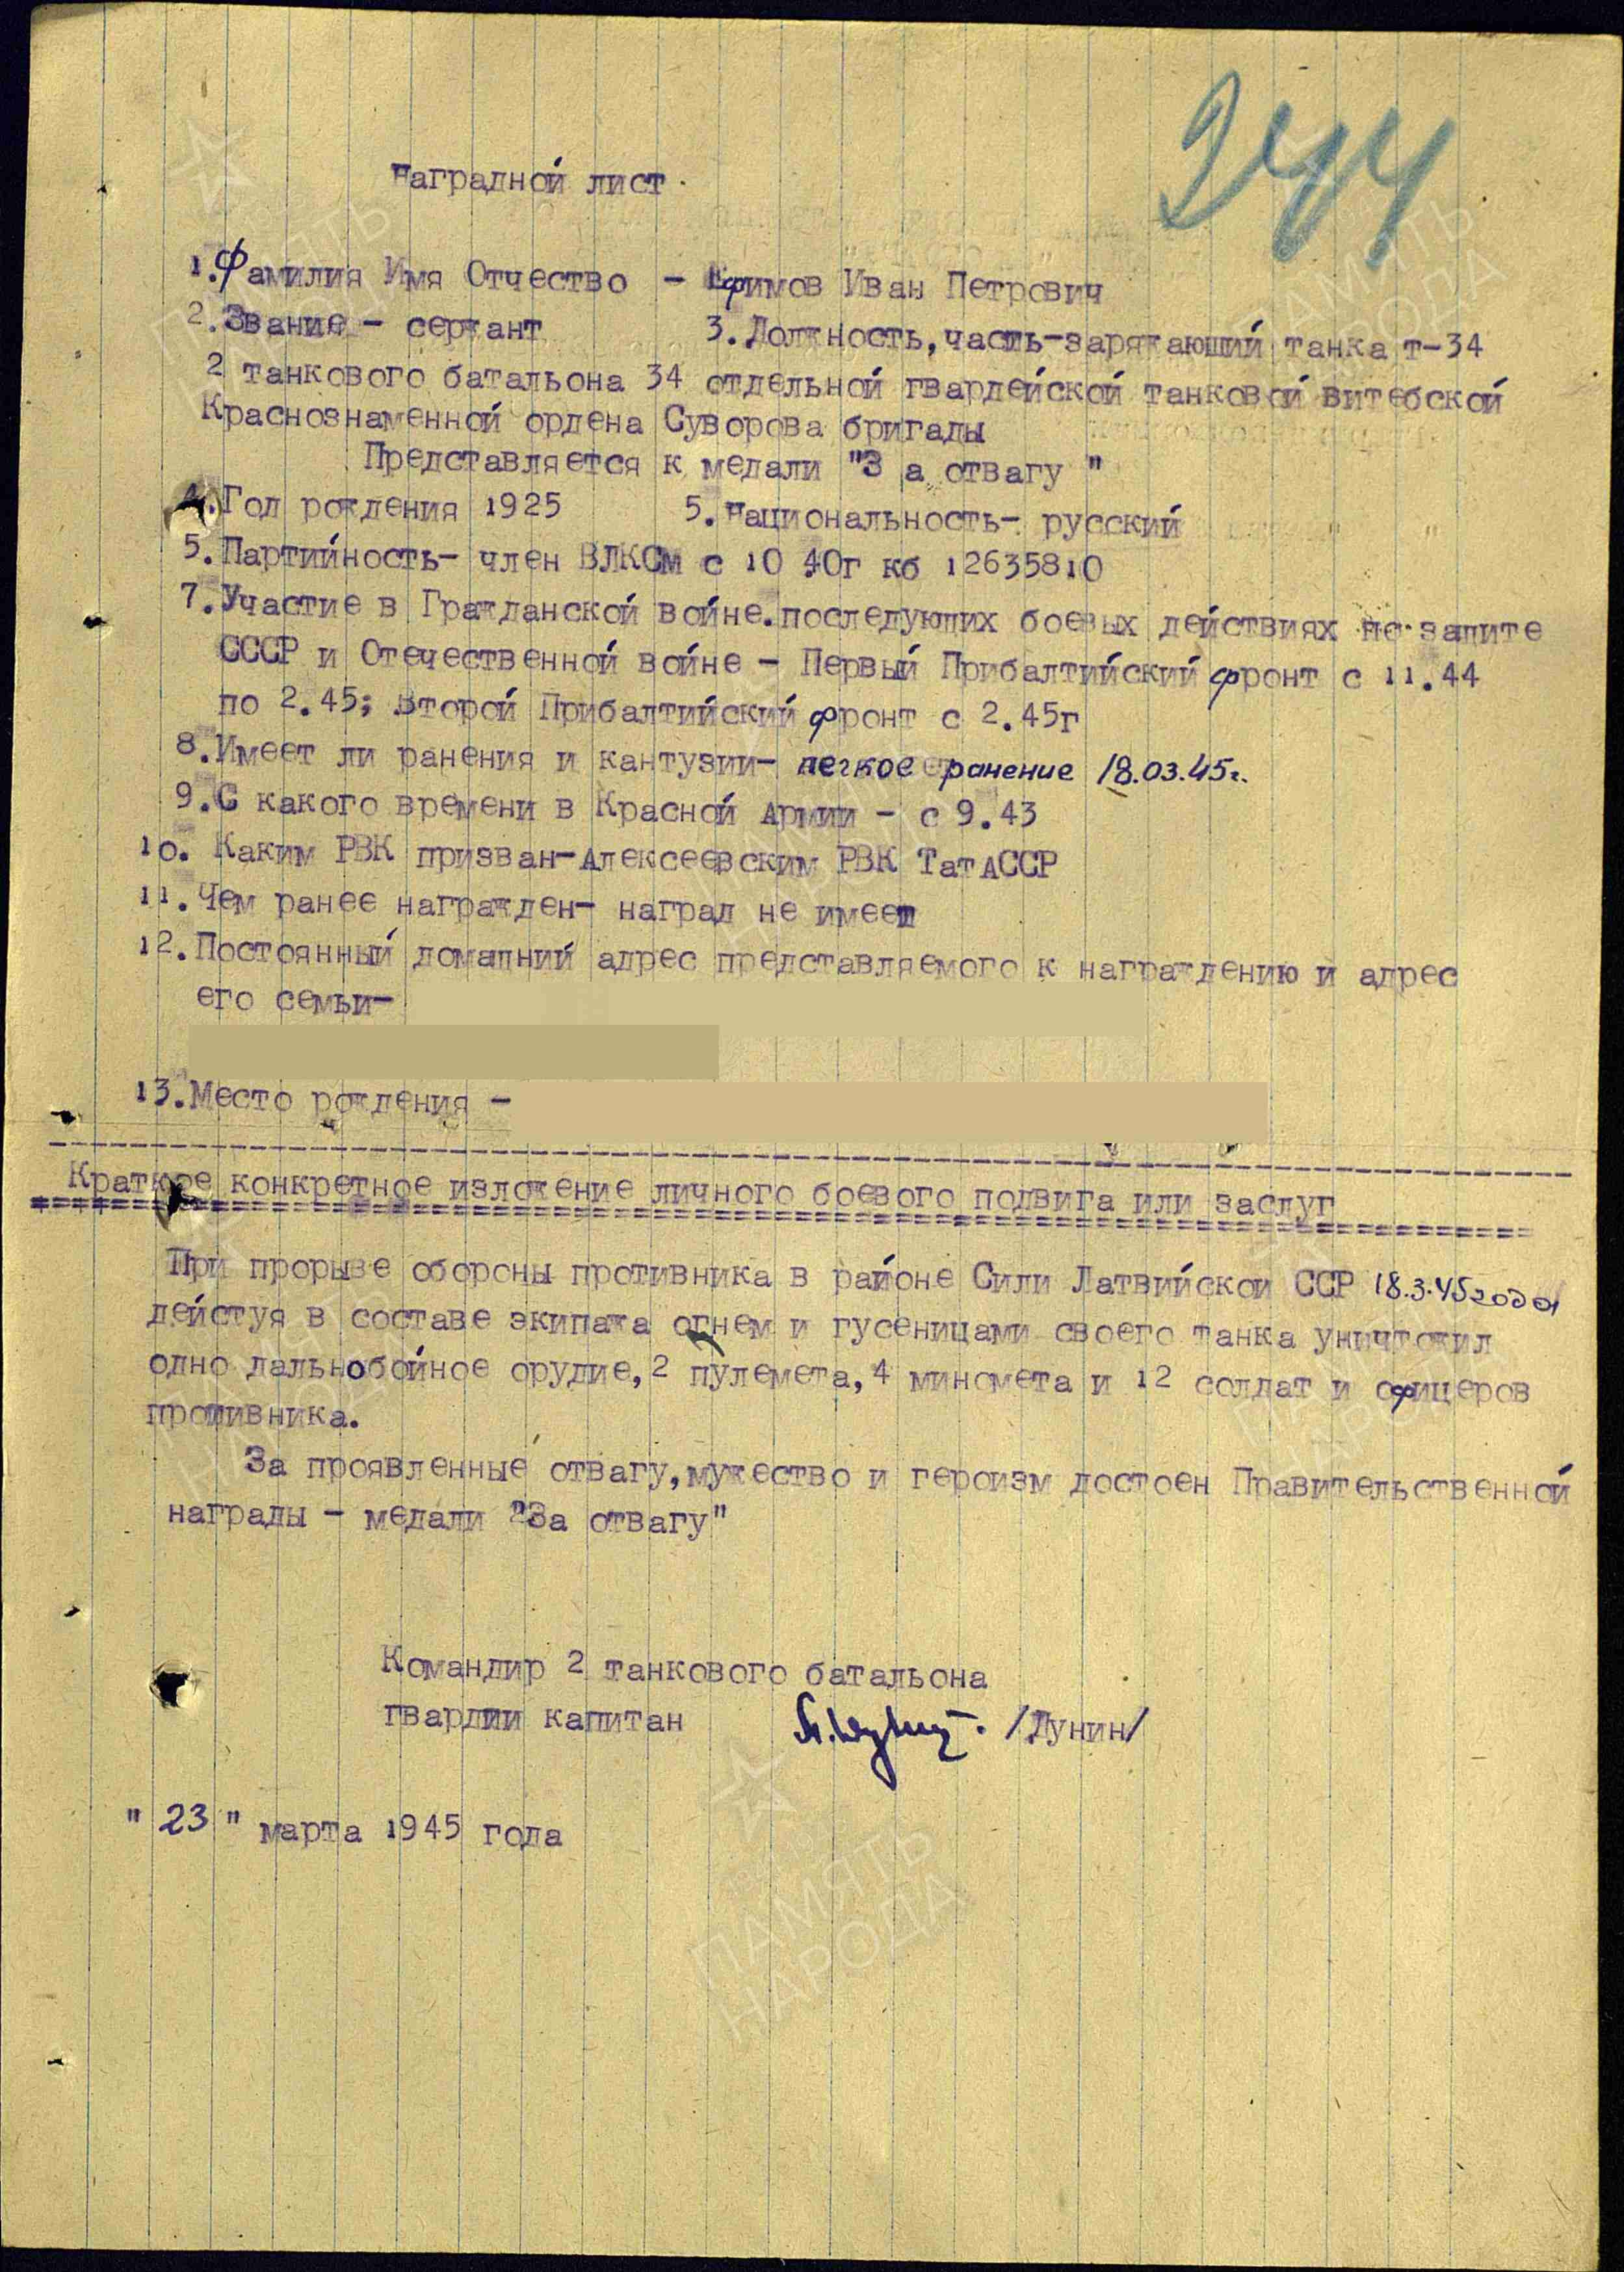 244
Наградной лист
1.Фамилия Имя Отчество - Ефимов Иван Петрович
2.Звание - сержант 3.Должность,часть-заряжающий танка т-34
2 танкового батальона 34 отдельной гвардейской танковой Витебской
Краснознаменной ордена Суворова бригады
Представляется к медали "З а отвагу "
4.Год рождения 1925 5.Национальность- русский
5.Партийность- член ВЛКСМ с 10 40г кб 12635810
7.Участие в Гражданской войне.последующих боевых действиях по защите
СССР и Отечественной войне - Первый Прибалтийский фронт с 11.44
по 2.45; второй Прибалтийский фронт с 2.45г
8.Имеет ли ранения и кантузии- легкое ранение 18.03.45г.
9.С какого времени в Красной Армии - с 9.43
10. Каким РВК призван-Алексеевским РВК ТатАССР
11.Чем ранее награжден- наград не имеет
12.Постоянный домашний адрес представляемого к награждению и адрес
его семьи-
13.Место рождения -
Краткое конкретное изложение личного боевого подвига или заслуг
При прорыве обороны противника в районе Сили Латвийской ССР 18.3.45 года
дейстуя в составе экипажа огнем и гусеницами своего танка уничтожил
одно дальнобойное орудие,2 пулемета,4 миномета и 12 солдат и офицеров
противника.
За проявленные отвагу,мужество и героизм достоен Правительственной
награды - медали "За отвагу"
Командир 2 танкового батальона
гвардии капитан /Дунин/
" 23 " марта 1945 года
ПАМЯТЬ
НАРОДА